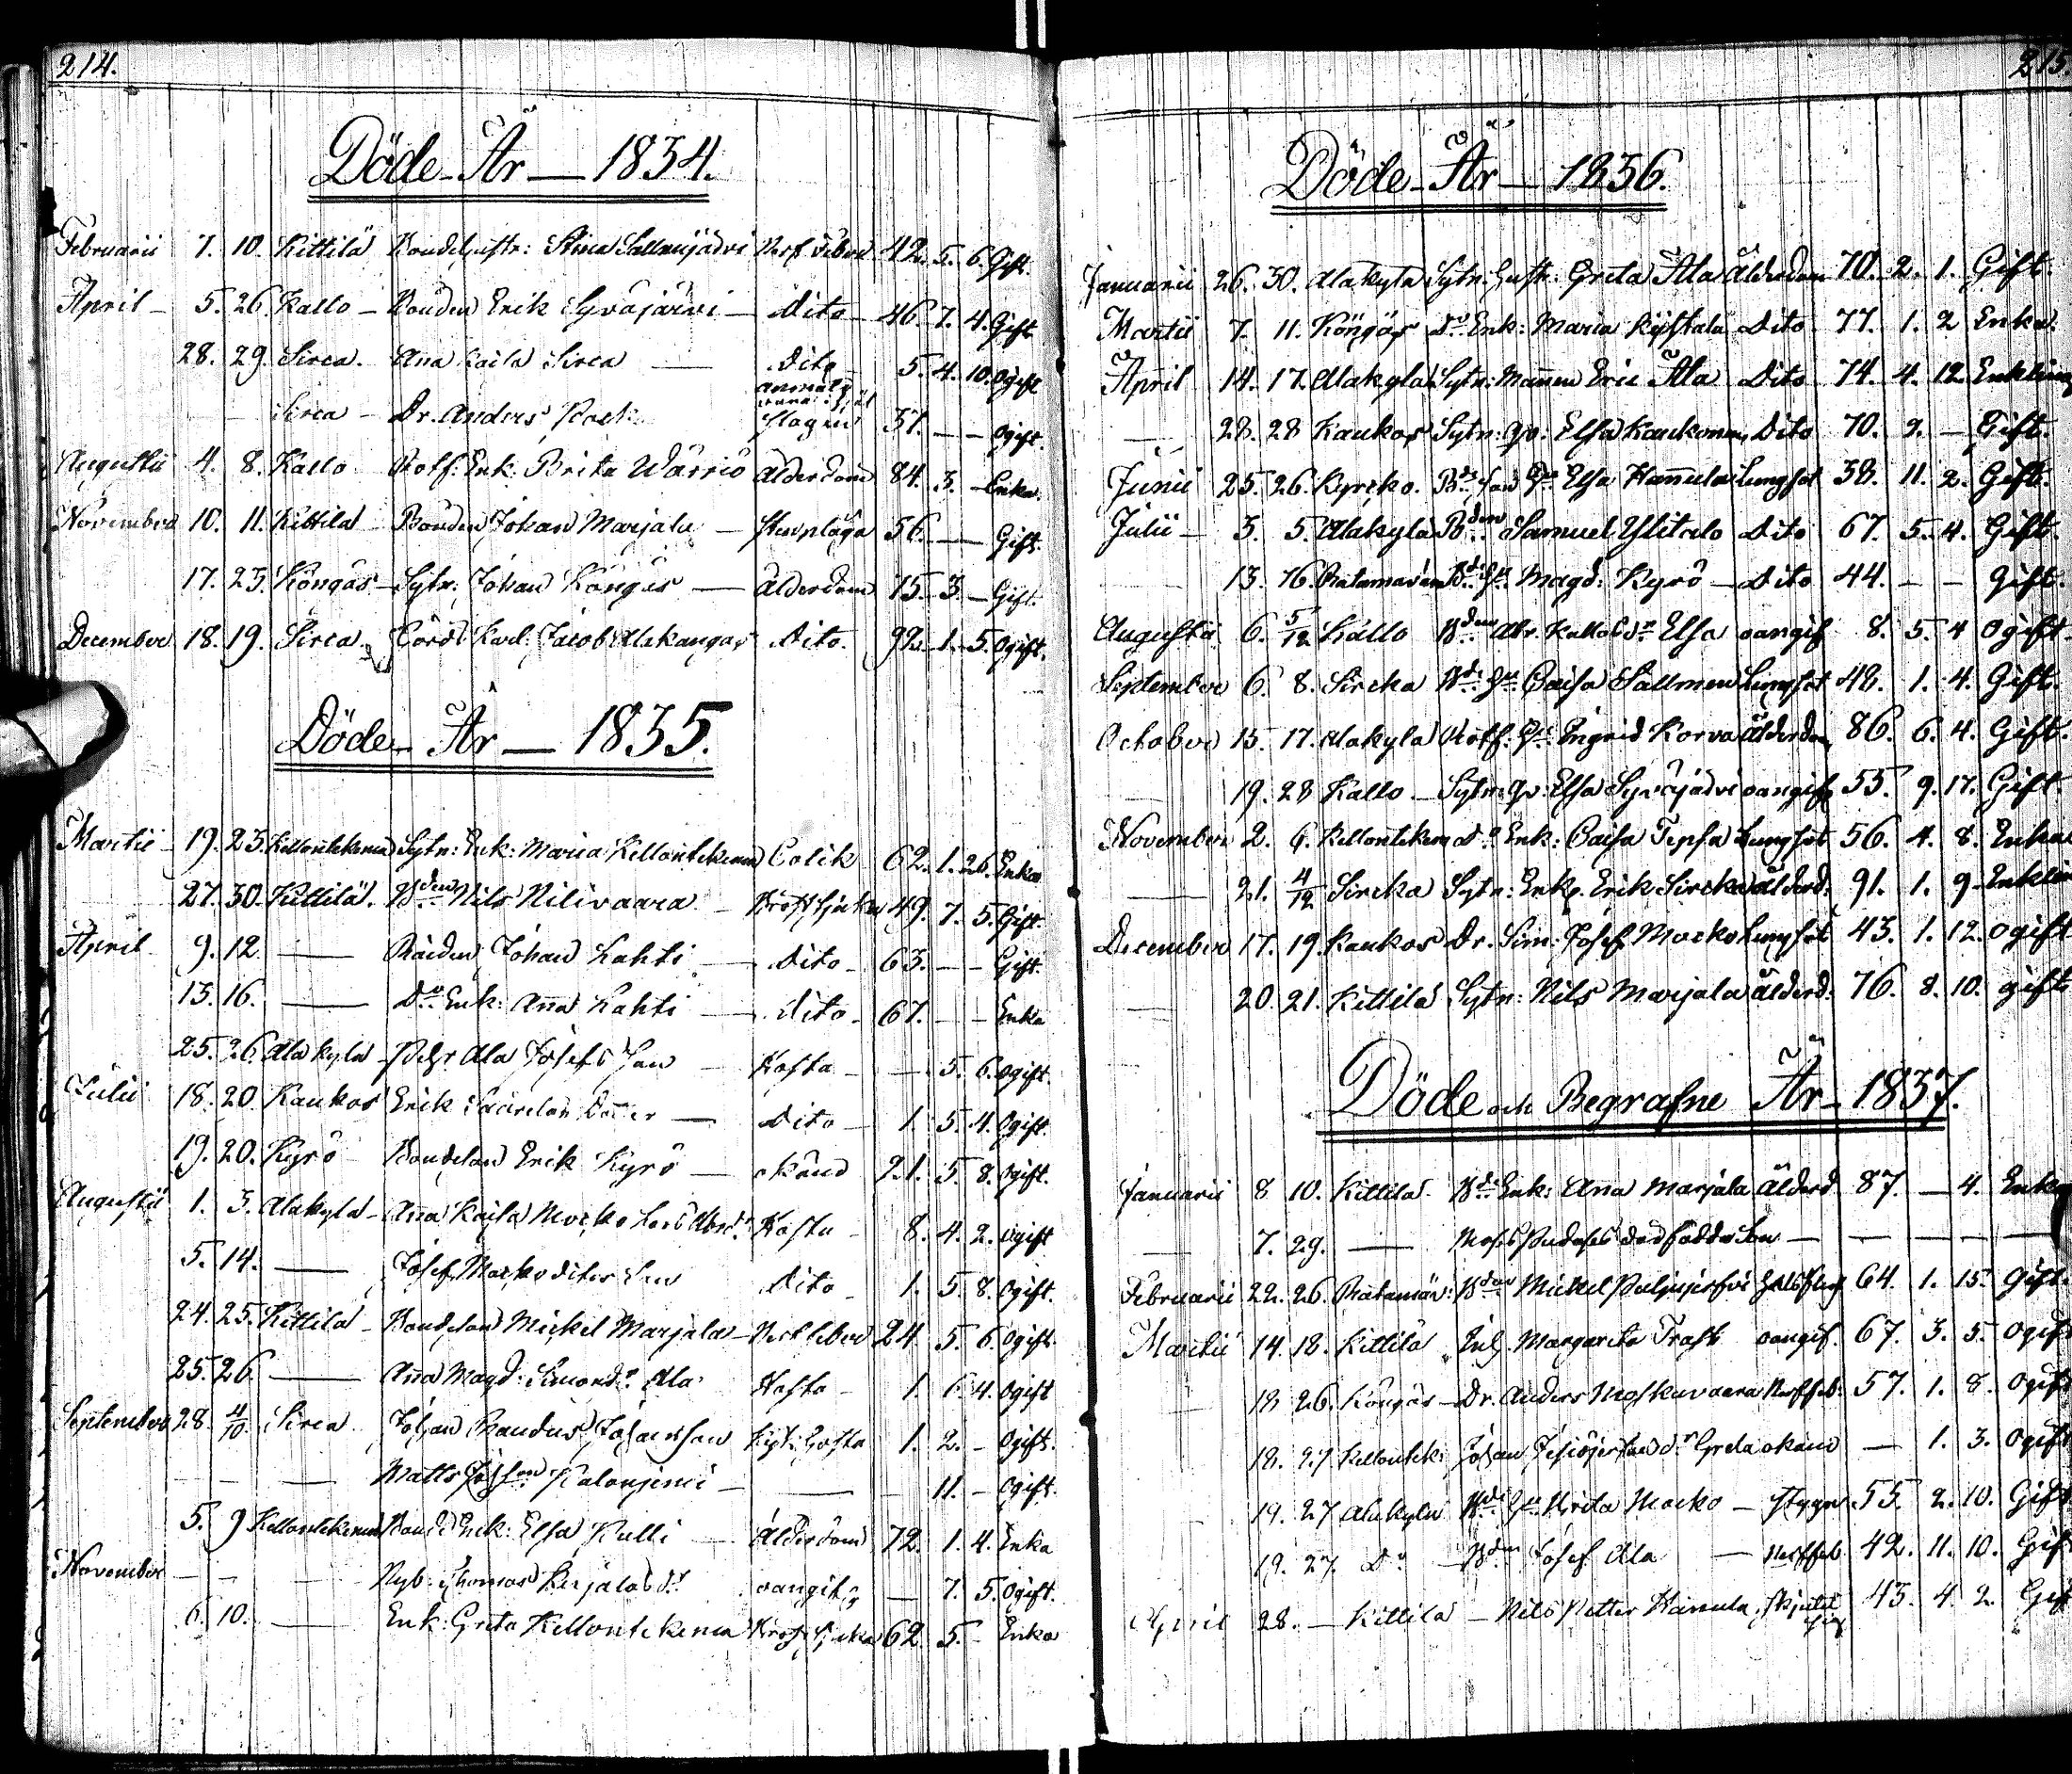 214.
Döde År 1834.
Februarii 7. 10. Kittilä Stina Sallanjärvi 42. 5. 6. Gift.
April 5. 26. Kallo Bonden Erik Syväjärvi Dito 46. 7. 4. Gift
28. 29. Sirca Ana Kaila Sirca Dito 5. 4. 10. Ogift
Sirca Dr. Anders 51. Ogift.
Augusti 4. 8. Kallo Enk: Brita Wärriö Ålderdom 84. 3. Enka.
Novembr 10. 11. Kittilä Bonden Johan Marjala Stenplåga 56. Gift.
17. 23. Köngäs Sytn: Johan Köngäs Ålderdom 75. 3. Gift.
December 18. 19. Sirca Jacob Alakangas Dito. 92. 1. 5. Ogift.
Döde År 1835.
Martii 19. 23. Kellontekemä Sytn: Enk: Maria Kellontekema Colik 62. 1. 26. Enka
27. 30. Kittilä. Bden Nils Nilivaara 49. 7. 5. Gift.
April 9. 12. Johan Lahti Dito 63. Gift.
13. 16. Do Enk: Anna Lahti Dito 67. Enka
25. 26. Alakyla Ala Josefs Son Hosta 5. 6. Ogift.
Julii 18. 20. Kaukos Erik Dito 1. 5. 4. Ogift.
19. 20. Kyrö Erik Kyrö okänd 21. 5. 8. Ogift.
Augusti 1. 3. Alakyla Anna Kaisa Mocko Hosta 8. 4. 2. Ogift
5. 14. Josef Mocko Dito 1. 5. 8. Ogift.
24. 25. Kittilä Mickel Marjala 24. 5. 6. Ogift.
25. 26. Anna Magd: Simons dr Ala Hosta 1. 6. 4. Ogift
September 28. 4/10 Sirca Johan Johansson Hosta 1. 2. Ogift.
Matts 11. Ogift.
5. 9 Kellontekema Enk: Elsa Kulli Ålderdom 72. 1. 4. Enka
November Nyb: Thomas oangif 7. 5. Ogift.
6. 10. Enk: Greta Kellontekema 62 5. Enka
215.
Döde År 1836.
Januarii 26. 30. Alakyla Sytn: Hustr: Greta Ala Ålderdom 70. 2. 1. Gift.
Martii 7. 11. Köngäs Do Enk: Maria Dito 77. 1. 2 Enka.
April 14. 17. Alakyla Sytn: Mannen Eric Ala Dito 74. 4. 12. Enkling
28. 28 Kaukos Sytn: Elsa Kaukonen Dito 70. 9. Gift.
Junii 25. 26. Kyrcko. Elsa Hannula Lungsot 38. 11. 2. Gift.
Julii 3. 5. Alakyla Bden Samuel Ylitalo Dito 67. 5. 4. Gift.
13. 16. Magd: Kyrö Dito 44. Gift.
Augusti 6. 5/12 Kallo Bden Abr. Kallo dr Elsa oangif 8. 5. 4 Ogift
September 6. 8. Sircka Caisa Sallmen Lungsot 48. 1. 4. Gift.
October 15. 17. Alakyla Ingrid Korva Ålderdom 86. 6. 4. Gift.
19. 28 Kallo Sytn: Elsa Syväjärvi oangif 55. 9. 17. Gift
November 2. 6. Kellontekema Do Enk: Caisa Tepsa Lungsot 56. 4. 8. Enka
21. 4/12 Sircka Sytn: Enkl. Erik Sircka ålderd: 91. 1. 9 Enkling
December 17. 19. Kaukos Dr. Sim: Josef Mocko Lungsot 43. 1. 12. Ogift
20. 21. Kittilä Sytn: Nils Marjala ålderd: 76. 8. 10. gift
Döde och Begrafne År 1837.
Januarii 8 10. Kittilä Enk: Anna Marjala Ålderd. 87. 4. Enka
7. 29. dödfödde Son
Februarii 22. 26. Bden Mickel 64. 1. 15. Gift
Martii 14. 18. Kittilä Margareta Trast oangif. 67. 3. 5. Ogift
18 26. Köngäs Dr. Anders Moskuvaara 57. 1. 8. Ogift
18. 27 Kellontek: Johan dr Greta okänd 1. 3. Ogift
19. 27 Alakyla Brita Mocko 55. 2. 10. Gift
19. 27. Do Bden Josef Ala 42. 11. 10. Gift
April 28. Kittilä Nils Petter Hannula 43. 4. 2. Gift